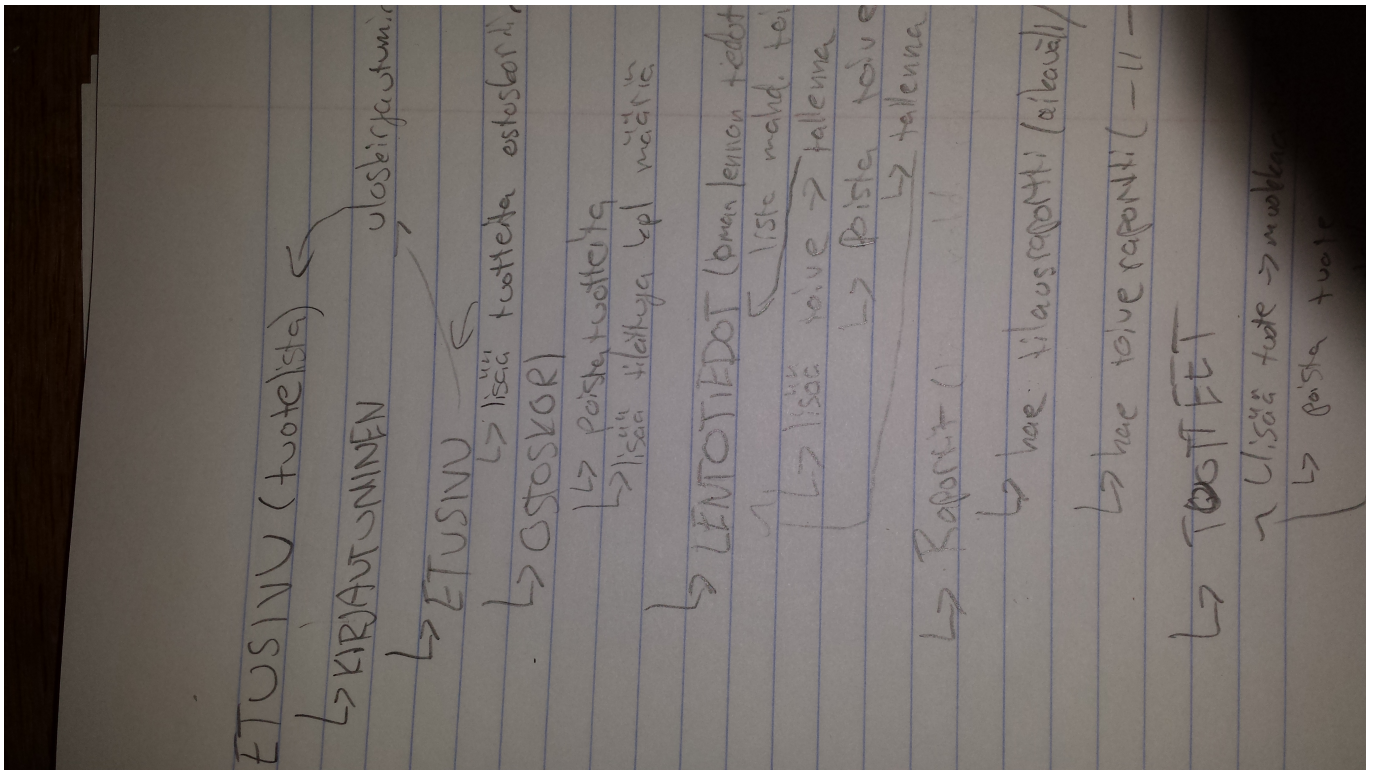 ETUSIVU (tuotelista)
↳ KIRJAUTUMINEN uloskirjautumin
↳ ETUSIVU
↳ lisää tuotteita ostoskorii
↳ OSTOSKORI
↳ poista tuotteita
↳ lisää tilattuja kpl määriä
↳ LENTOTIEDOT (oman lennon tiedot
lista mahd. toi
↳ lisää toive → tallenna
↳ poista toive
↳ tallenna
↳ Raportit
↳ hae tilausraportti (aikaväli/
↳ hae toiveraportti ( -11-
↳ TUOTTEET
lisää tuote → muokkaa
↳ poista tuote